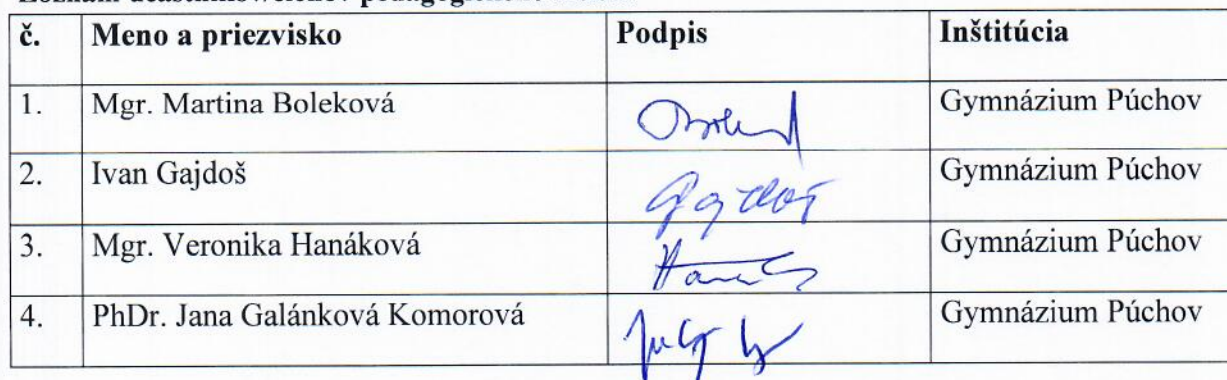 č. Meno a priezvisko Podpis Inštitúcia
1. Mgr. Martina Boleková Gymnázium Púchov
2. Ivan Gajdoš Gajdoš Gymnázium Púchov
3. Mgr. Veronika Hanáková Gymnázium Púchov
4. PhDr. Jana Galánková Komorová Gymnázium Púchov